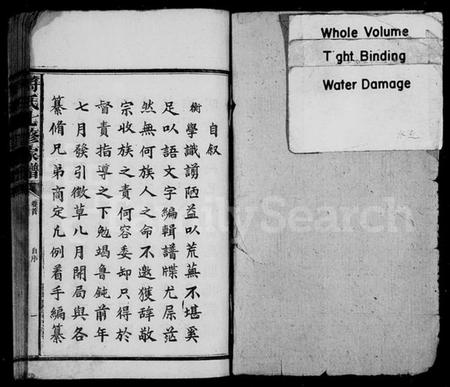 Whole Volume
T ght Binding
Water Damage
自叙
衡學識謭陋益以荒蕪不堪奚
足以語文字編輯譜牒尤屬茫
然無何族人之命不邀獲辭敬
宗收族之責何容委卸只得於
督責指導之下勉竭魯鈍前年
七月發引徵草八月開局與各
纂脩兄弟商定凡例着手編纂
氏 修家譜
卷首
自序
一
FamilySearch